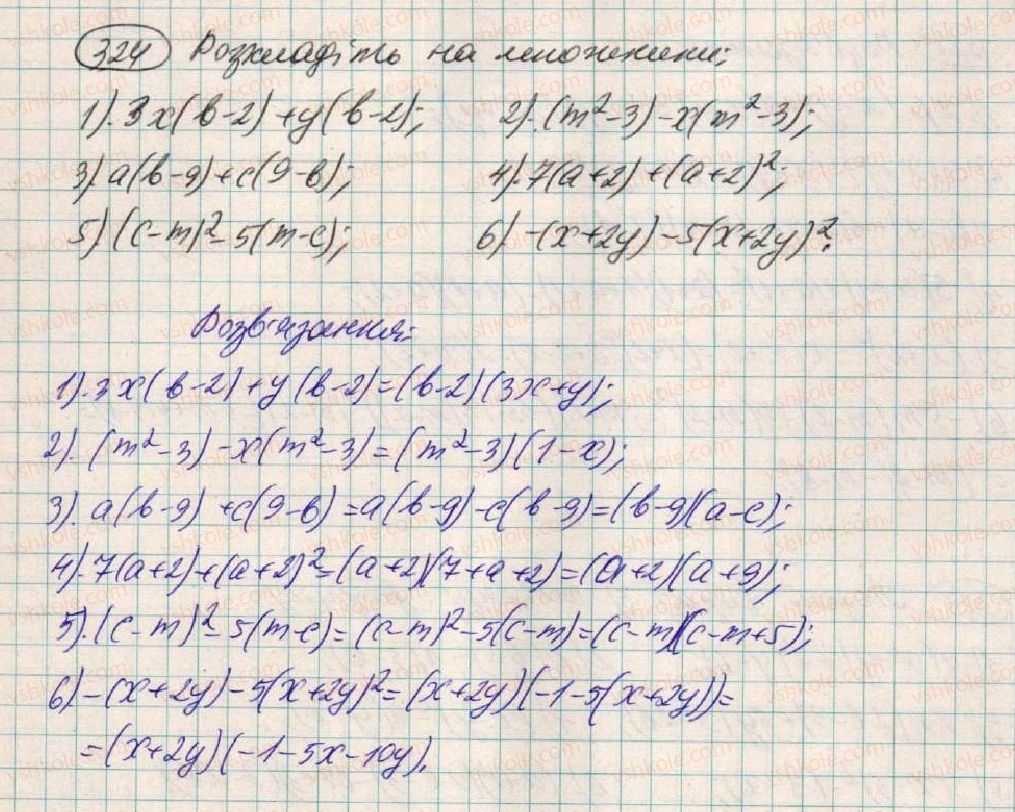 324 Розкладіть на множники:
1). 3x(b-2)+y(b-2); 2). (m²-3)-x(m²-3);
3). a(b-9)+c(9-b); 4). 7(a+2)+(a+2)²;
5) (c-m)²-5(m-c); 6) -(x+2y)-5(x+2y)².
Розв'язання:
1). 3x(b-2)+y(b-2)=(b-2)(3x+y);
2). (m²-3)-x(m²-3)=(m²-3)(1-x);
3). a(b-9)+c(9-b)=a(b-9)-c(b-9)=(b-9)(a-c);
4). 7(a+2)+(a+2)²=(a+2)(7+a+2)=(a+2)(a+9);
5). (c-m)²-5(m-c)=(c-m)²-5(c-m)=(c-m)(c-m+5);
6) -(x+2y)-5(x+2y)²=(x+2y)(-1-5(x+2y))=
=(x+2y)(-1-5x-10y).